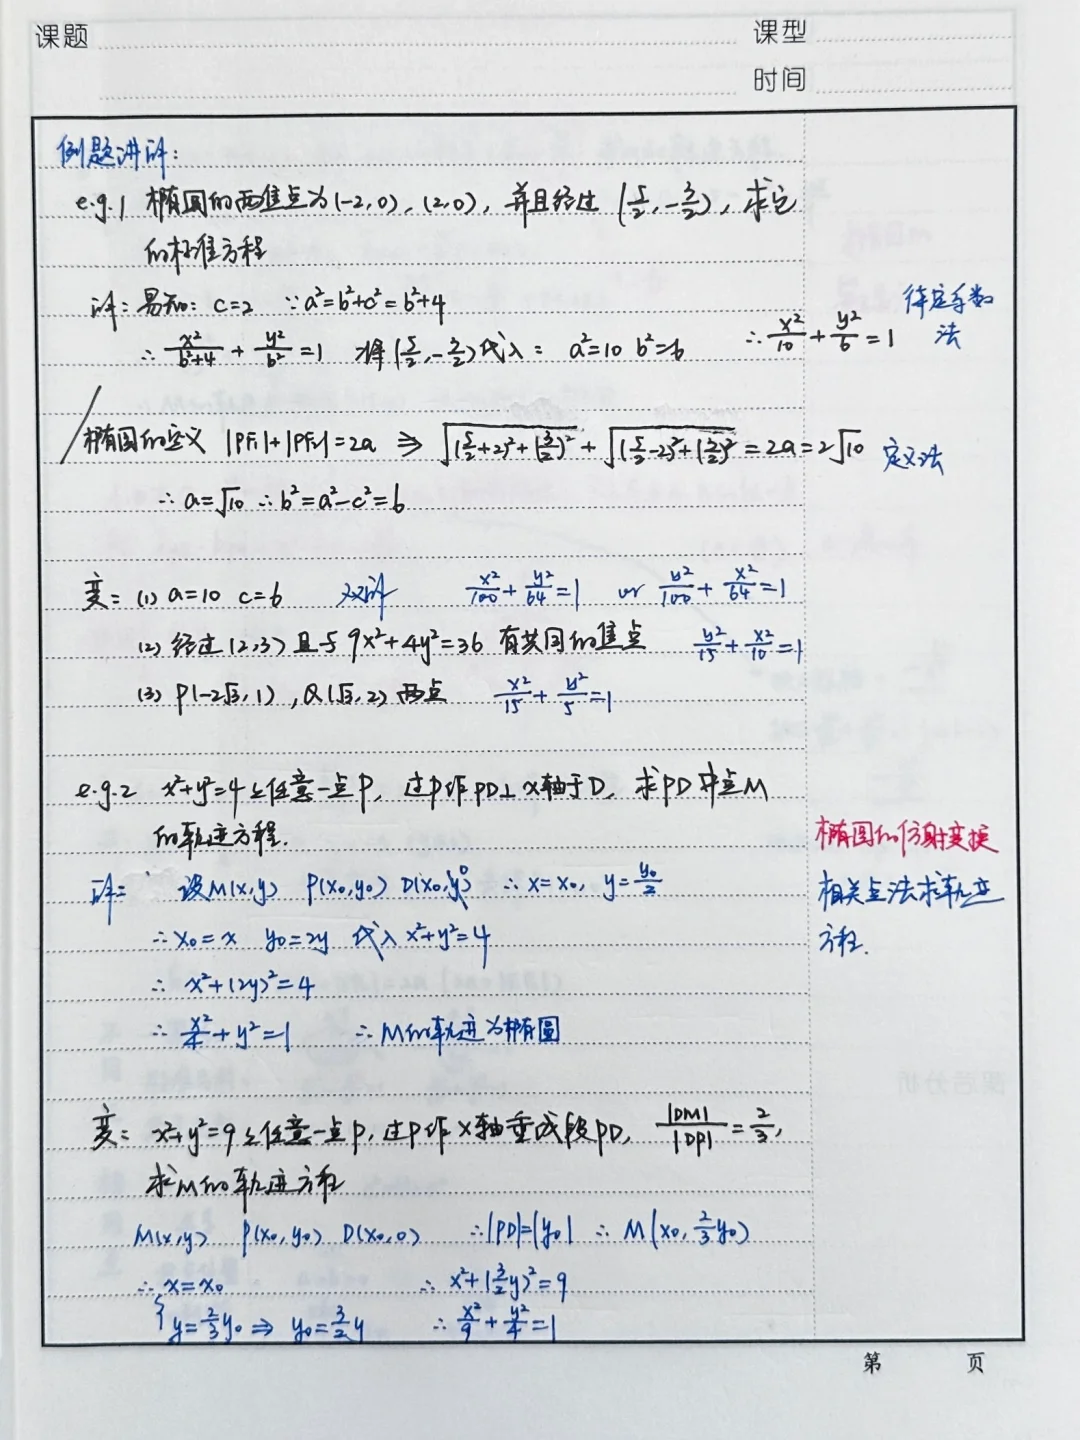 课题
课型
时间
例题讲评:
e.g.1 椭圆的两焦点为(-2,0),(2,0),并且经过(5/2,-3/2),求它
的标准方程
评:易知:c=2 ∵a²=b²+c²=b²+4
∴x²/(b²+4)+y²/b²=1 将(5/2,-3/2)代入: a²=10 b²=6 ∴x²/10+y²/6=1
待定系数
法
椭圆的定义 |PF₁|+|PF₂|=2a ⇒ √((5/2+2)²+(3/2)²)+√((5/2-2)²+(3/2)²)=2a=2√10 定义法
∴a=√10 ∴b²=a²-c²=6
变:(1) a=10 c=6 双评 x²/100+y²/64=1 or y²/100+x²/64=1
(2) 经过(2,3)且与9x²+4y²=36有共同的焦点 y²/15+x²/10=1
(3) P(-2√3,1),Q(√3,2)两点 x²/15+y²/5=1
e.g.2 x²+y²=4上任意一点P,过P作PD⊥x轴于D,求PD中点M
的轨迹方程.
椭圆的仿射变换
评: 设M(x,y) P(x₀,y₀) D(x₀,0) ∴x=x₀, y=y₀/2
相关点法求轨迹
方程.
∴x₀=x y₀=2y 代入x²+y²=4
∴x²+(2y)²=4
∴x²/4+y²=1 ∴M的轨迹为椭圆
变:x²+y²=9上任意一点P,过P作x轴垂线段PD, |DM|/|DP|=2/3,
求M的轨迹方程
M(x,y) P(x₀,y₀) D(x₀,0) ∴|PD|=|y₀| ∴M(x₀,2/3y₀)
∴{x=x₀ ∴x²+(3/2y)²=9
y=2/3y₀⇒y₀=3/2y ∴x²/9+y²/4=1
第 页